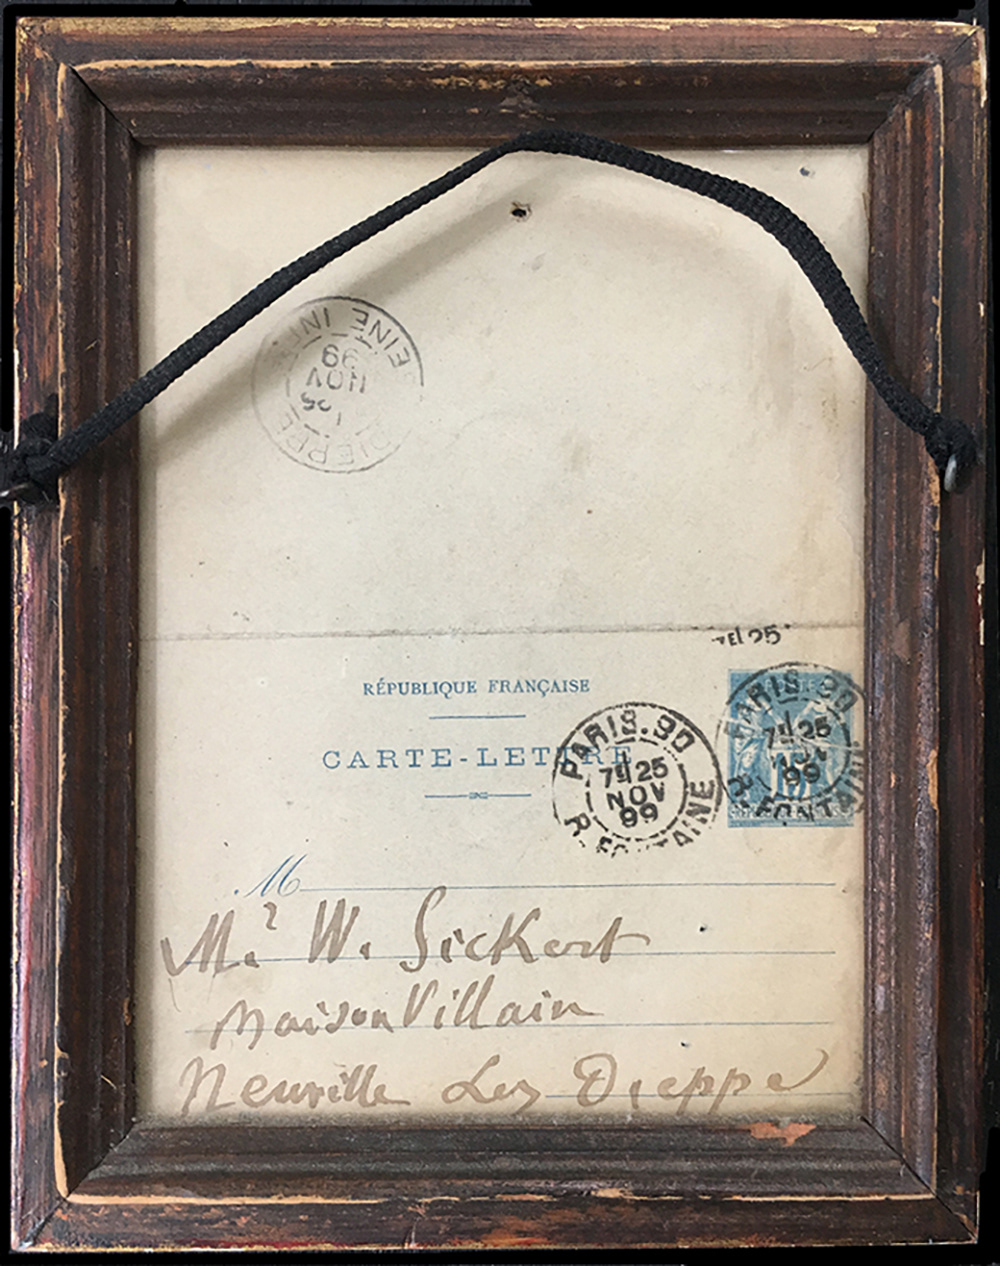 SEINE INF
DIEPPE
25
NOV
99
7E 25
RÉPUBLIQUE FRANÇAISE
CARTE-LETTRE
PARIS.90
7E 25
NOV
99
R. FONTAINE
PARIS.90
7E 25
NOV
99
R. FONTAINE
15
M
Mr. W. Sickert
Maison Villain
Neuville Lez Dieppe